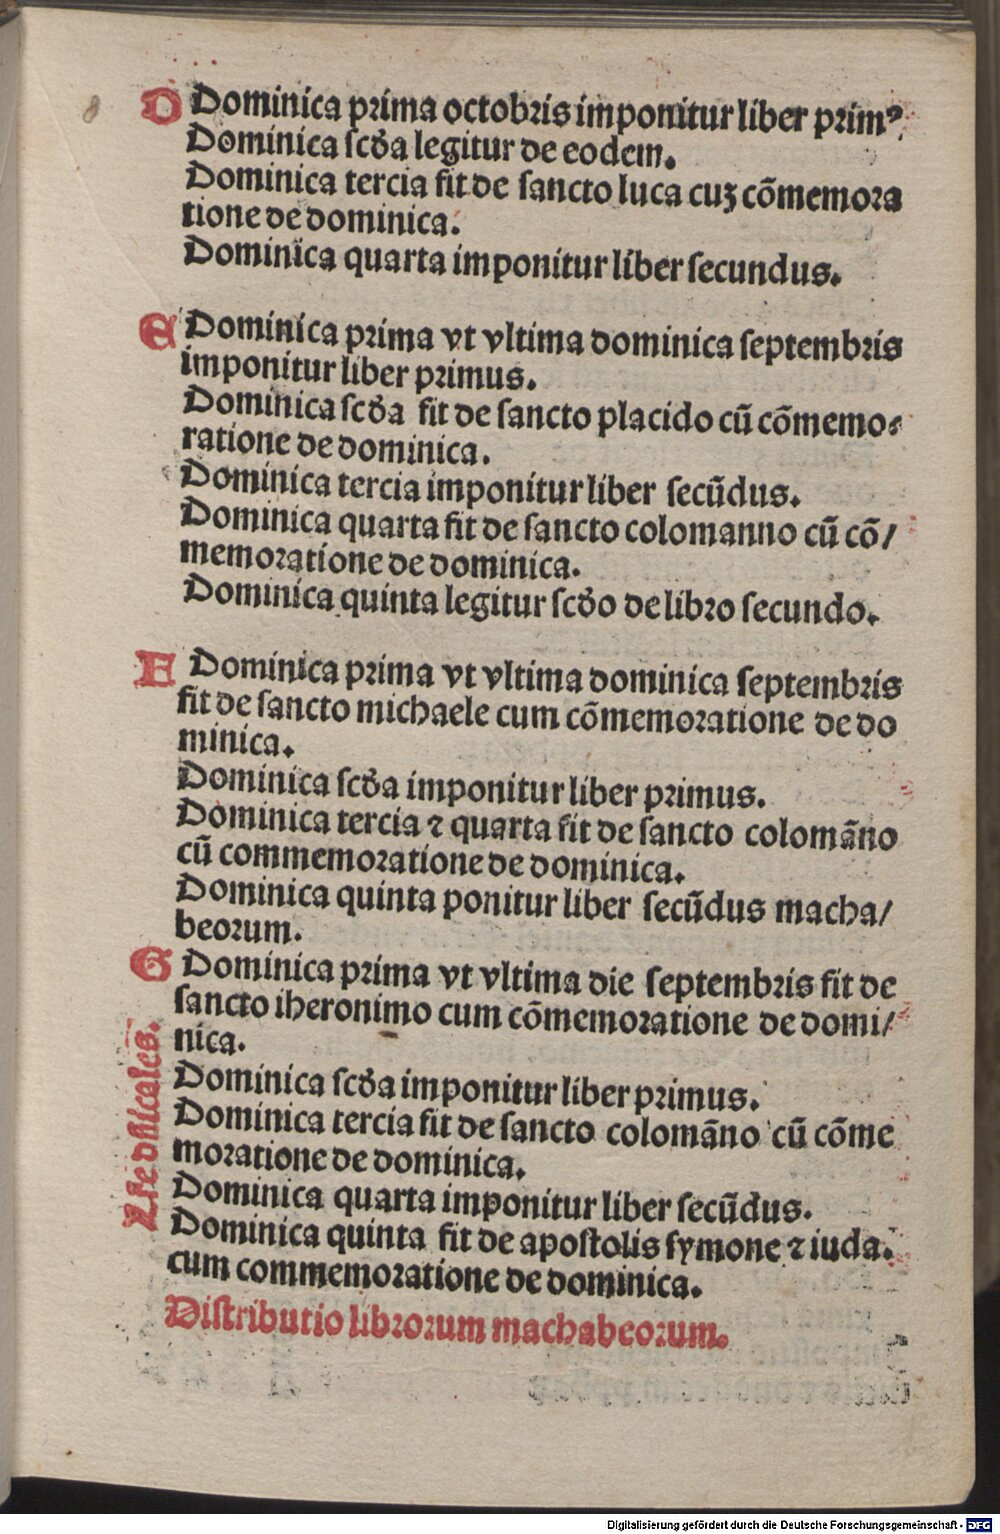 8
D Dominica prima octobris imponitur liber primꝰ.
Dominica scďa legitur de eodem.
Dominica tercia fit de sancto luca cuꝫ cōmemora
tione de dominica.
Dominica quarta imponitur liber secundus.
E Dominica prima vt vltima dominica septembris
imponitur liber primus.
Dominica scďa fit de sancto placido cū cōmemo⸗
ratione de dominica.
Dominica tercia imponitur liber secūdus.
Dominica quarta fit de sancto colomanno cū cō/
memoratione de dominica.
Dominica quinta legitur scďo de libro secundo.
F Dominica prima vt vltima dominica septembris
fit de sancto michaele cum cōmemoratione de do
minica.
Dominica scďa imponitur liber primus.
Dominica tercia ⁊ quarta fit de sancto colomāno
cū commemoratione de dominica.
Dominica quinta ponitur liber secūdus macha/
beorum.
G Dominica prima vt vltima die septembris fit de
sancto iheronimo cum cōmemoratione de domi/
nica.
Dominica scďa imponitur liber primus.
Dominica tercia fit de sancto colomāno cū cōme
moratione de dominica.
Dominica quarta imponitur liber secūdus.
Dominica quinta fit de apostolis symone ⁊ iuda.
cum commemoratione de dominica.
Lr̄e dn̄icales.
Distributio librorum machabeorum.
Digitalisierung gefördert durch die Deutsche Forschungsgemeinschaft - DFG